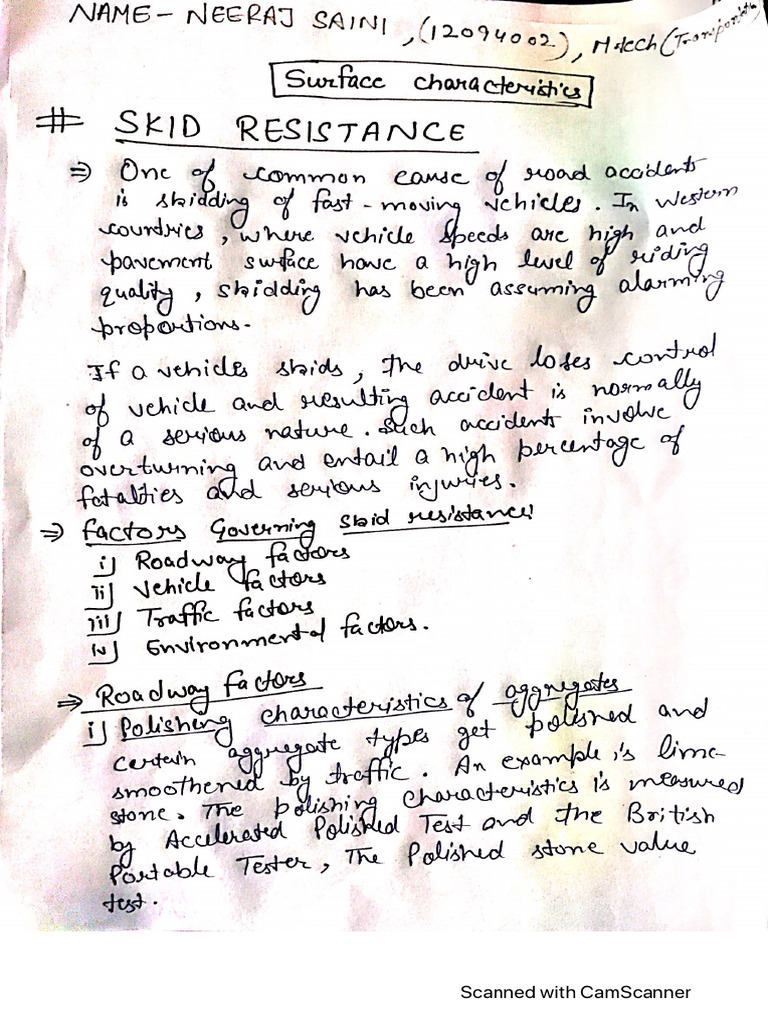 NAME - NEERAJ SAINI, (12094002), Mtech (Transportation
Surface characteristics
# SKID RESISTANCE
⇒ One of common cause of road accidents
is skidding of fast-moving vehicles. In Western
countries, where vehicle speeds are high and
pavement surface have a high level of riding
quality, skidding has been assuming alarming
proportions.
If a vehicles skids, the drive loses control
of vehicle and resulting accident is normally
of a serious nature. Such accidents involve
overturning and entail a high percentage of
fatalties and serious injuries.
⇒ factors Governing skid resistance:
i) Roadway factors
ii) Vehicle factors
iii) Traffic factors
iv) Environmental factors.
⇒ Roadway factors
i) Polishing characteristics of aggregates
Certain aggregate types get polished and
smoothened by traffic. An example is lime-
stone. The polishing characteristics is measured
by Accelerated Polished Test and the British
Portable Tester, The Polished stone value
test.
Scanned with CamScanner